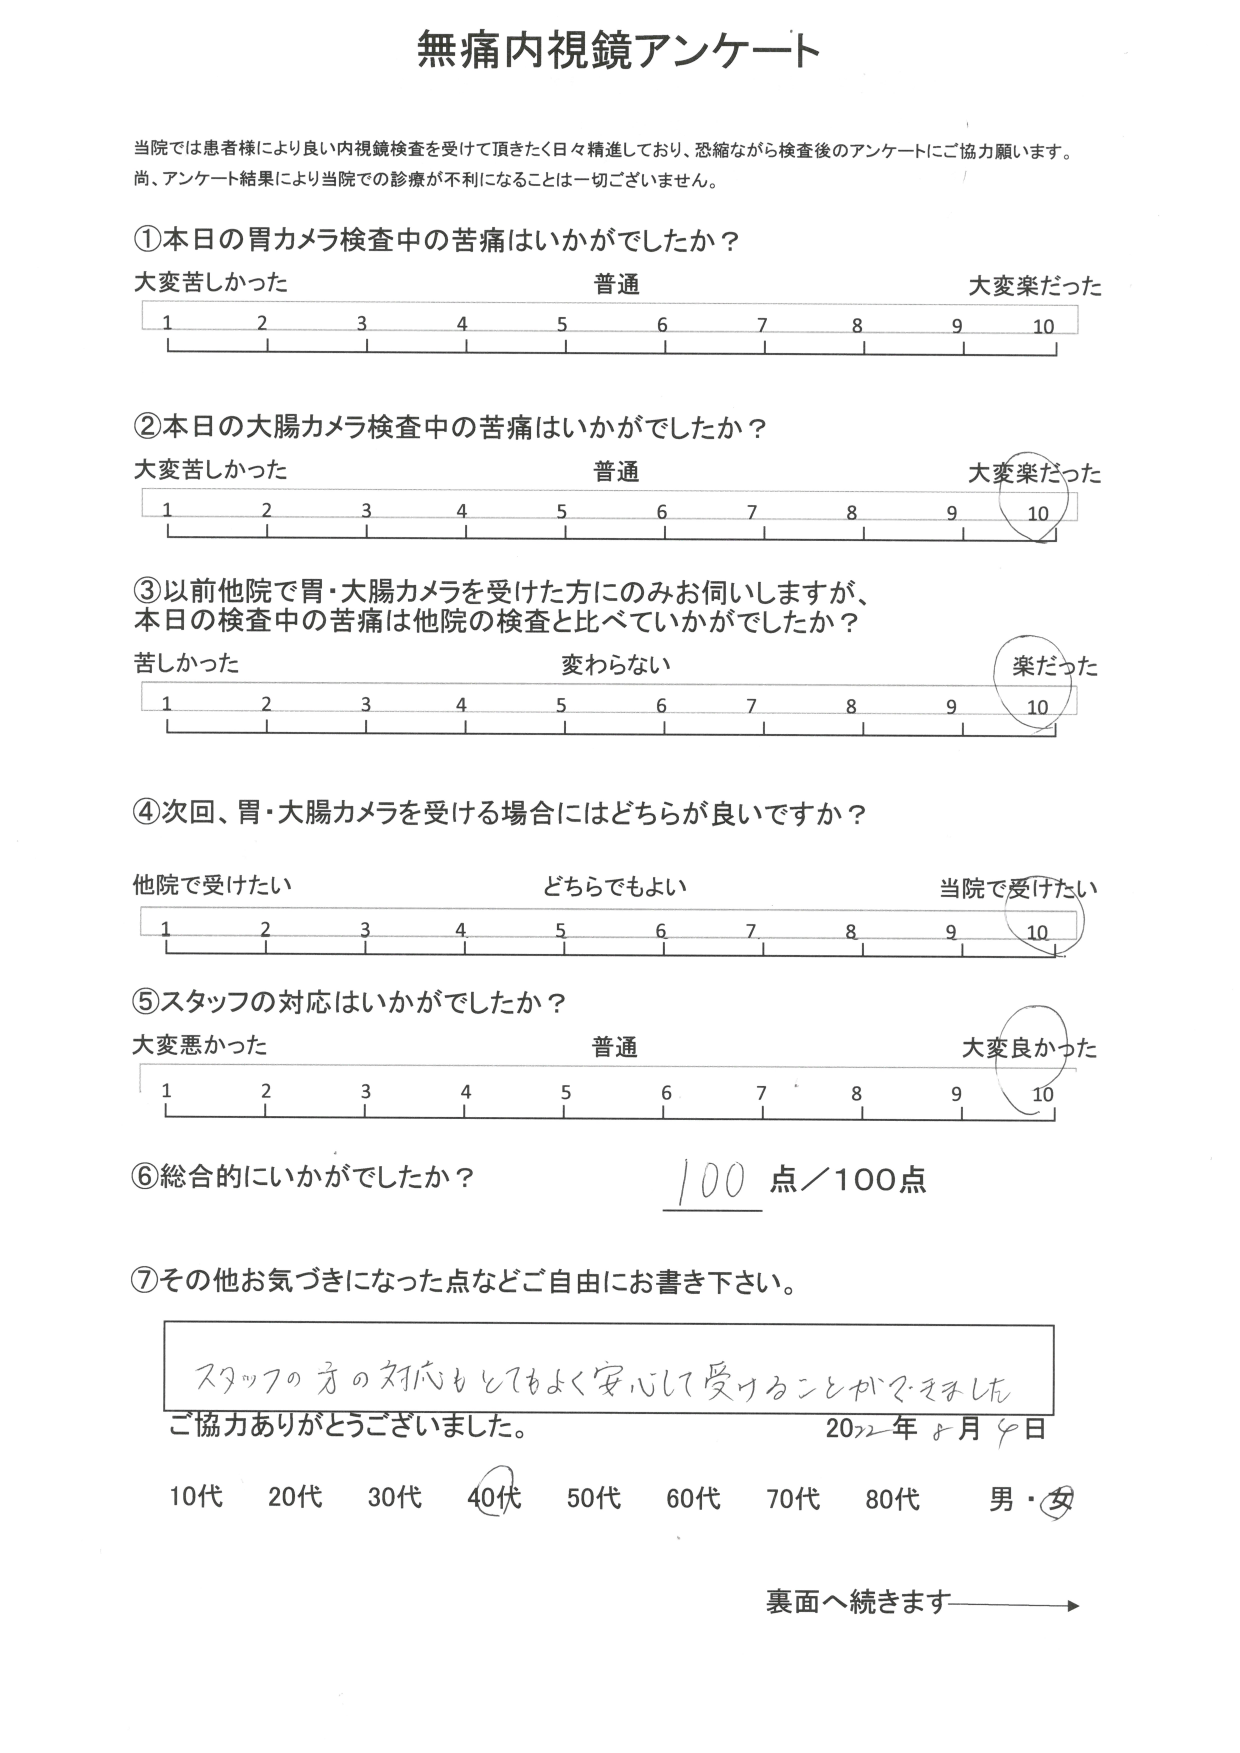 無痛内視鏡アンケート
当院では患者様により良い内視鏡検査を受けて頂きたく日々精進しており、恐縮ながら検査後のアンケートにご協力願います。
尚、アンケート結果により当院での診療が不利になることは一切ございません。
①本日の胃カメラ検査中の苦痛はいかがでしたか？
大変苦しかった 普通 大変楽だった
1 2 3 4 5 6 7 8 9 10
②本日の大腸カメラ検査中の苦痛はいかがでしたか？
大変苦しかった 普通 大変楽だった
1 2 3 4 5 6 7 8 9 10
③以前他院で胃・大腸カメラを受けた方にのみお伺いしますが、
本日の検査中の苦痛は他院の検査と比べていかがでしたか？
苦しかった 変わらない 楽だった
1 2 3 4 5 6 7 8 9 10
④次回、胃・大腸カメラを受ける場合にはどちらが良いですか？
他院で受けたい どちらでもよい 当院で受けたい
1 2 3 4 5 6 7 8 9 10
⑤スタッフの対応はいかがでしたか？
大変悪かった 普通 大変良かった
1 2 3 4 5 6 7 8 9 10
⑥総合的にいかがでしたか？ 100 点／100点
⑦その他お気づきになった点などご自由にお書き下さい。
スタッフの方の対応もとてもよく安心して受けることができました
ご協力ありがとうございました。 2022年 8月 4日
10代 20代 30代 40代 50代 60代 70代 80代 男・女
裏面へ続きます